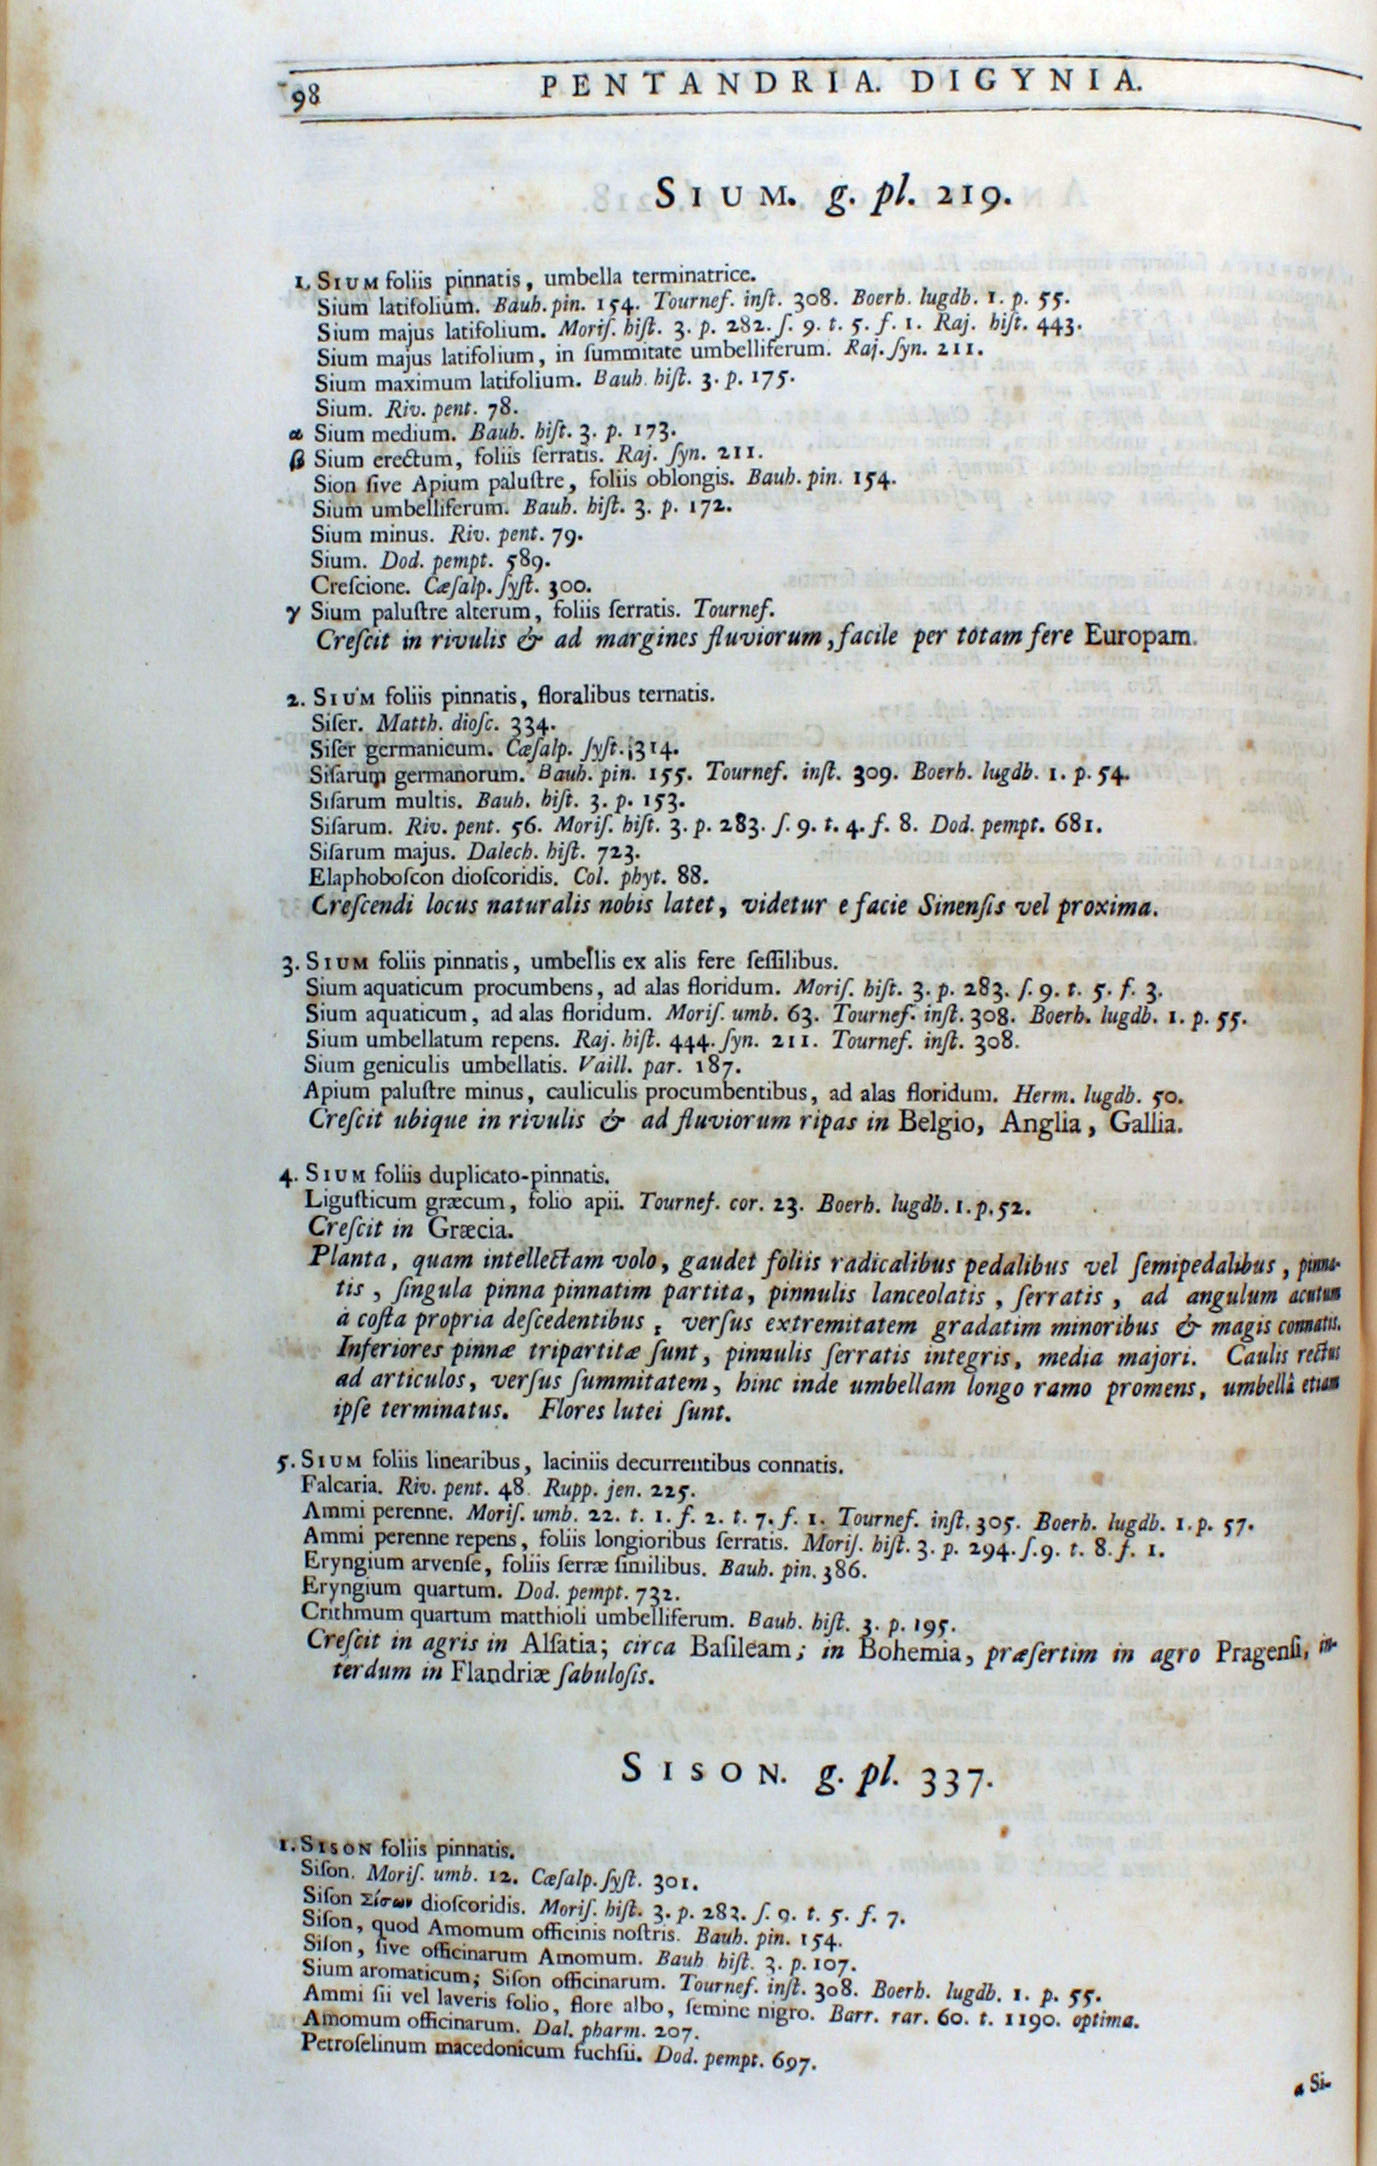 98 PENTANDRIA. DIGYNIA.
SIUM. g. pl. 219.
1. SIUM foliis pinnatis, umbella terminatrice.
Sium latifolium. Bauh. pin. 154. Tournef. inſt. 308. Boerh. lugdb. 1. p. 55.
Sium majus latifolium. Moriſ. hiſt. 3. p. 282. ſ. 9. t. 5. f. 1. Raj. hiſt. 443.
Sium majus latifolium, in ſummitate umbelliferum. Raj. ſyn. 211.
Sium maximum latifolium. Bauh. hiſt. 3. p. 175.
Sium. Riv. pent. 78.
α Sium medium. Bauh. hiſt. 3. p. 173.
β Sium erectum, foliis ſerratis. Raj. ſyn. 211.
Sion ſive Apium paluſtre, foliis oblongis. Bauh. pin. 154.
Sium umbelliferum. Bauh. hiſt. 3. p. 172.
Sium minus. Riv. pent. 79.
Sium. Dod. pempt. 589.
Creſcione. Cæſalp. ſyſt. 300.
γ Sium paluſtre alterum, foliis ſerratis. Tournef.
Creſcit in rivulis & ad margines fluviorum, facile per totam fere Europam.
2. SIUM foliis pinnatis, floralibus ternatis.
Siſer. Matth. dioſc. 334.
Siſer germanicum. Cæſalp. ſyſt. 314.
Siſarum germanorum. Bauh. pin. 155. Tournef. inſt. 309. Boerh. lugdb. 1. p. 54.
Siſarum multis. Bauh. hiſt. 3. p. 153.
Siſarum. Riv. pent. 56. Moriſ. hiſt. 3. p. 283. ſ. 9. t. 4. f. 8. Dod. pempt. 681.
Siſarum majus. Dalech. hiſt. 723.
Elaphoboſcon dioſcoridis. Col. phyt. 88.
Creſcendi locus naturalis nobis latet, videtur e facie Sinenſis vel proxima.
3. SIUM foliis pinnatis, umbellis ex alis fere ſeſſilibus.
Sium aquaticum procumbens, ad alas floridum. Moriſ. hiſt. 3. p. 283. ſ. 9. t. 5. f. 3.
Sium aquaticum, ad alas floridum. Moriſ. umb. 63. Tournef. inſt. 308. Boerh. lugdb. 1. p. 55.
Sium umbellatum repens. Raj. hiſt. 444. ſyn. 211. Tournef. inſt. 308.
Sium geniculis umbellatis. Vaill. par. 187.
Apium paluſtre minus, cauliculis procumbentibus, ad alas floridum. Herm. lugdb. 50.
Creſcit ubique in rivulis & ad fluviorum ripas in Belgio, Anglia, Gallia.
4. SIUM foliis duplicato-pinnatis.
Liguſticum græcum, folio apii. Tournef. cor. 23. Boerh. lugdb. 1. p. 52.
Creſcit in Græcia.
Planta, quam intellectam volo, gaudet foliis radicalibus pedalibus vel ſemipedalibus, pinna-
tis, ſingula pinna pinnatim partita, pinnulis lanceolatis, ſerratis, ad angulum acutum
a coſta propria deſcedentibus, verſus extremitatem gradatim minoribus & magis connatis.
Inferiores pinnæ tripartitæ ſunt, pinnulis ſerratis integris, media majori. Caulis rectus
ad articulos, verſus ſummitatem, hinc inde umbellam longo ramo promens, umbellâ etiam
ipſe terminatus. Flores lutei ſunt.
5. SIUM foliis linearibus, laciniis decurrentibus connatis.
Falcaria. Riv. pent. 48. Rupp. jen. 225.
Ammi perenne. Moriſ. umb. 22. t. 1. f. 2. t. 7. f. 1. Tournef. inſt. 305. Boerh. lugdb. 1. p. 57.
Ammi perenne repens, foliis longioribus ſerratis. Moriſ. hiſt. 3. p. 294. ſ. 9. t. 8. f. 1.
Eryngium arvenſe, foliis ſerræ ſimilibus. Bauh. pin. 386.
Eryngium quartum. Dod. pempt. 732.
Crithmum quartum matthioli umbelliferum. Bauh. hiſt. 3. p. 195.
Creſcit in agris in Alſatia; circa Baſileam; in Bohemia, præſertim in agro Pragenſi, in-
terdum in Flandriæ ſabuloſis.
SISON. g. pl. 337.
1. SISON foliis pinnatis.
Siſon. Moriſ. umb. 12. Cæſalp. ſyſt. 301.
Siſon Σίσων dioſcoridis. Moriſ. hiſt. 3. p. 283. ſ. 9. t. 5. f. 7.
Siſon, quod Amomum officinis noſtris. Bauh. pin. 154.
Siſon, ſive officinarum Amomum. Bauh hiſt. 3. p. 107.
Sium aromaticum; Siſon officinarum. Tournef. inſt. 308. Boerh. lugdb. 1. p. 55.
Ammi ſii vel laveris folio, flore albo, ſemine nigro. Barr. rar. 60. t. 1190. optima.
Amomum officinarum. Dal. pharm. 207.
Petroſelinum macedonicum fuchſii. Dod. pempt. 697.
α Si-